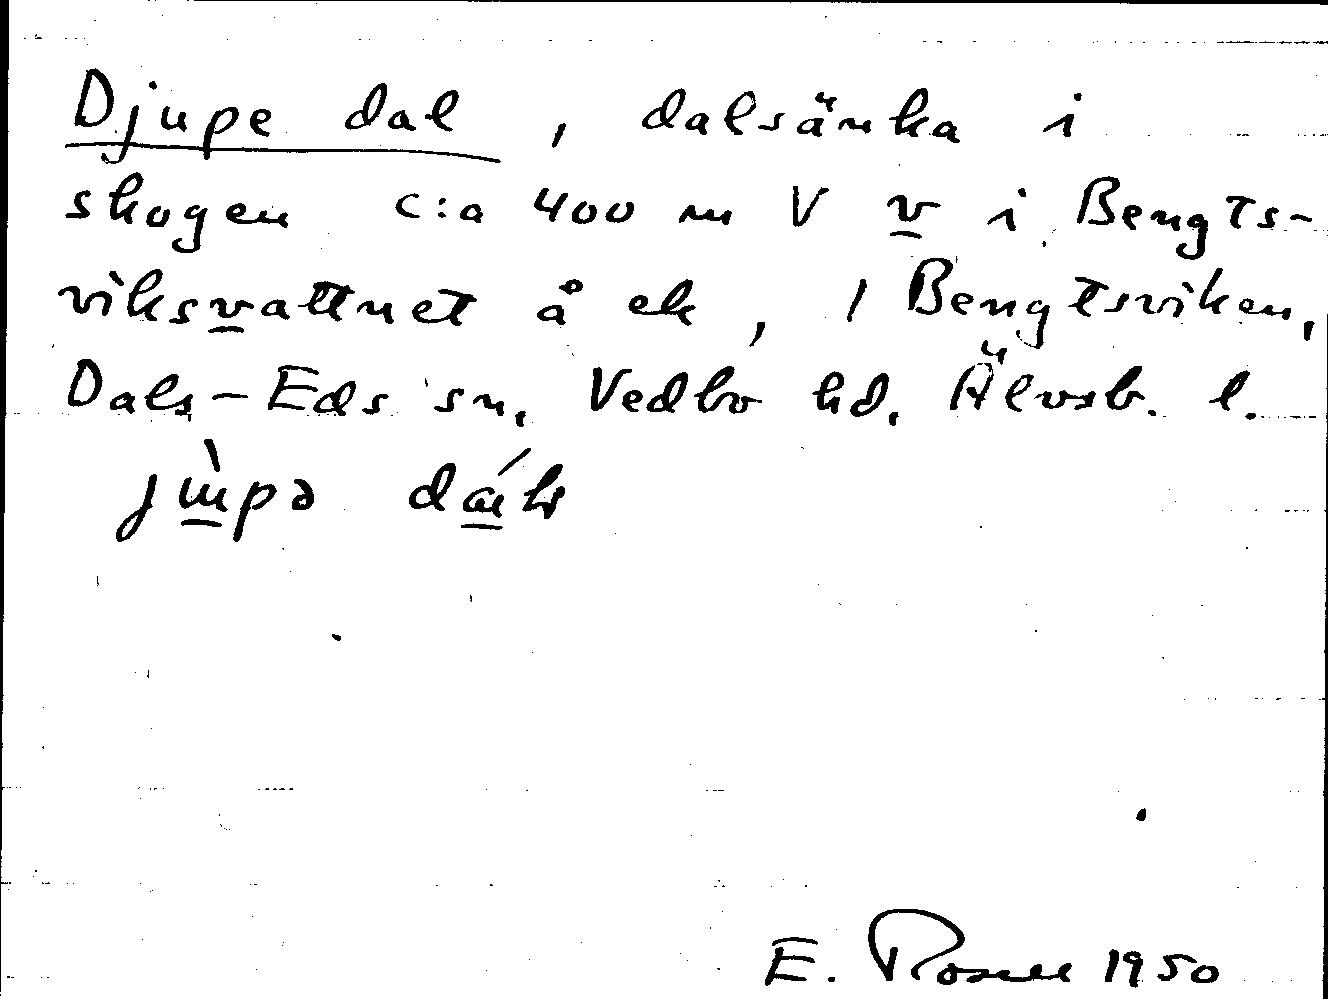 Djupe dal, dalsänka i
skogen c:a 400 m V v i Bengts-
viksvattnet å ek, 1 Bengtsviken,
Dals-Eds sn, Vedbo hd. Älvsb. l.
E. Rosell 1950